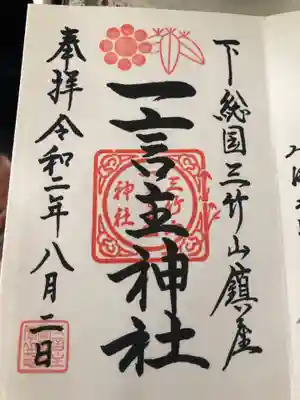 下総国三竹山鎮座
一言主神社
奉拝令和二年八月二日
三竹山
神社